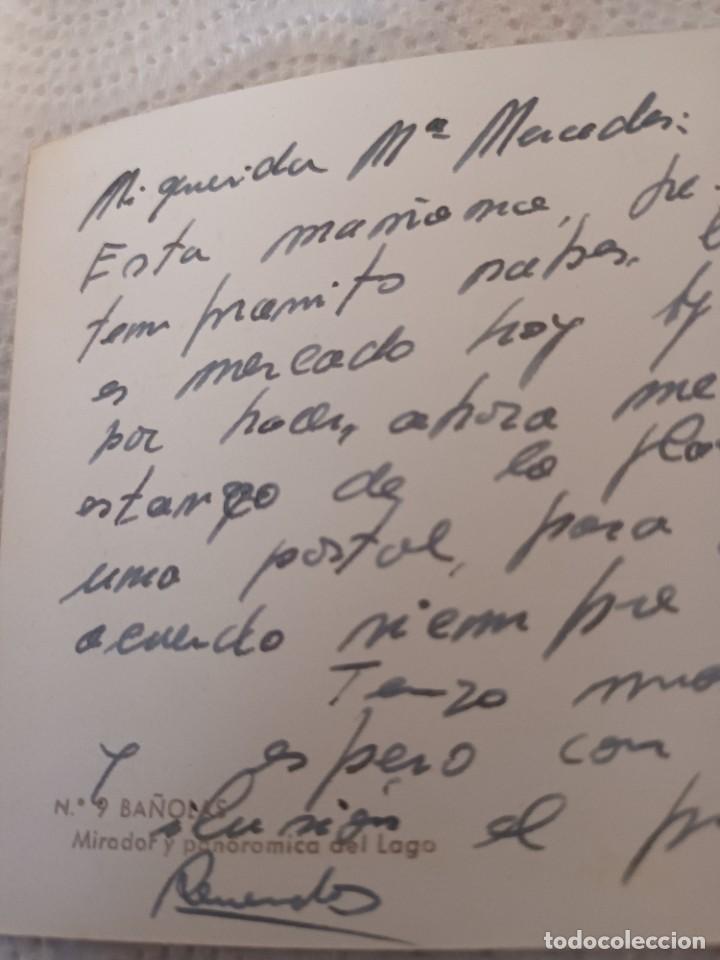 Mi querida Mª Mercedes:
Esta mañana,
tempranito sabes.
es mercado hoy
por hacer, ahora me
estanco de la
una postal, para
acuerdo siempre
Tengo
Y espero con
ilusión el
Recuerdos
N.º 9 BAÑOLAS
Mirador y panoramica del Lago
todocoleccion
todocoleccion.net